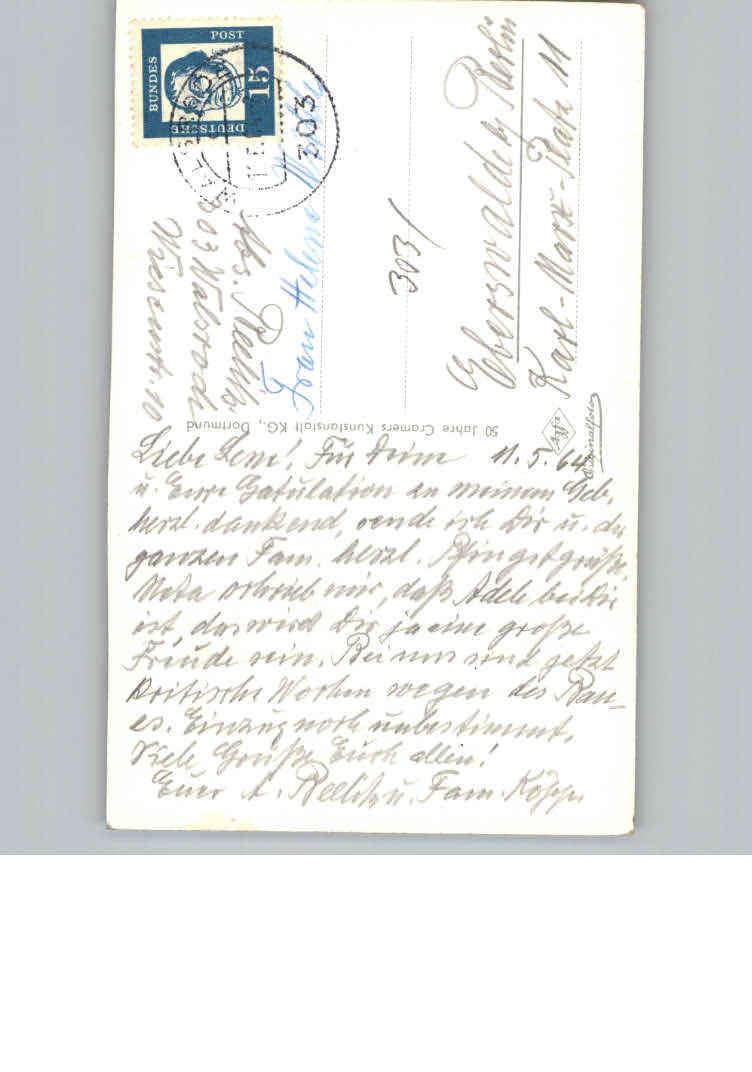 DEUTSCHE
BUNDES
POST
15
303
Abs. Reelitz
303 Walsrode
Wiesenstr. 10
Frau Helene
303/
Eberswalde b/ Berlin
Karl-Marx-Platz 11
50 Jahre Cramers Kunstanstalt KG., Dortmund
Agfa
Originalfoto
Liebe Lene! Für Deine 11.5.64
u. Eure Gatulation zu meinem Geb.
herzl. dankend, sende ich Dir u. der
ganzen Fam. herzl. Pfingstgrüße.
Meta schrieb mir, daß Adele bei Dir
ist, das wird Dir ja eine große
Freude sein. Bei uns sind jetzt
kritische Wochen wegen des Bau-
es. Einzug noch unbestimmt.
Viele Grüße Euch allen!
Eure A. Reelitz u. Fam. Köpp